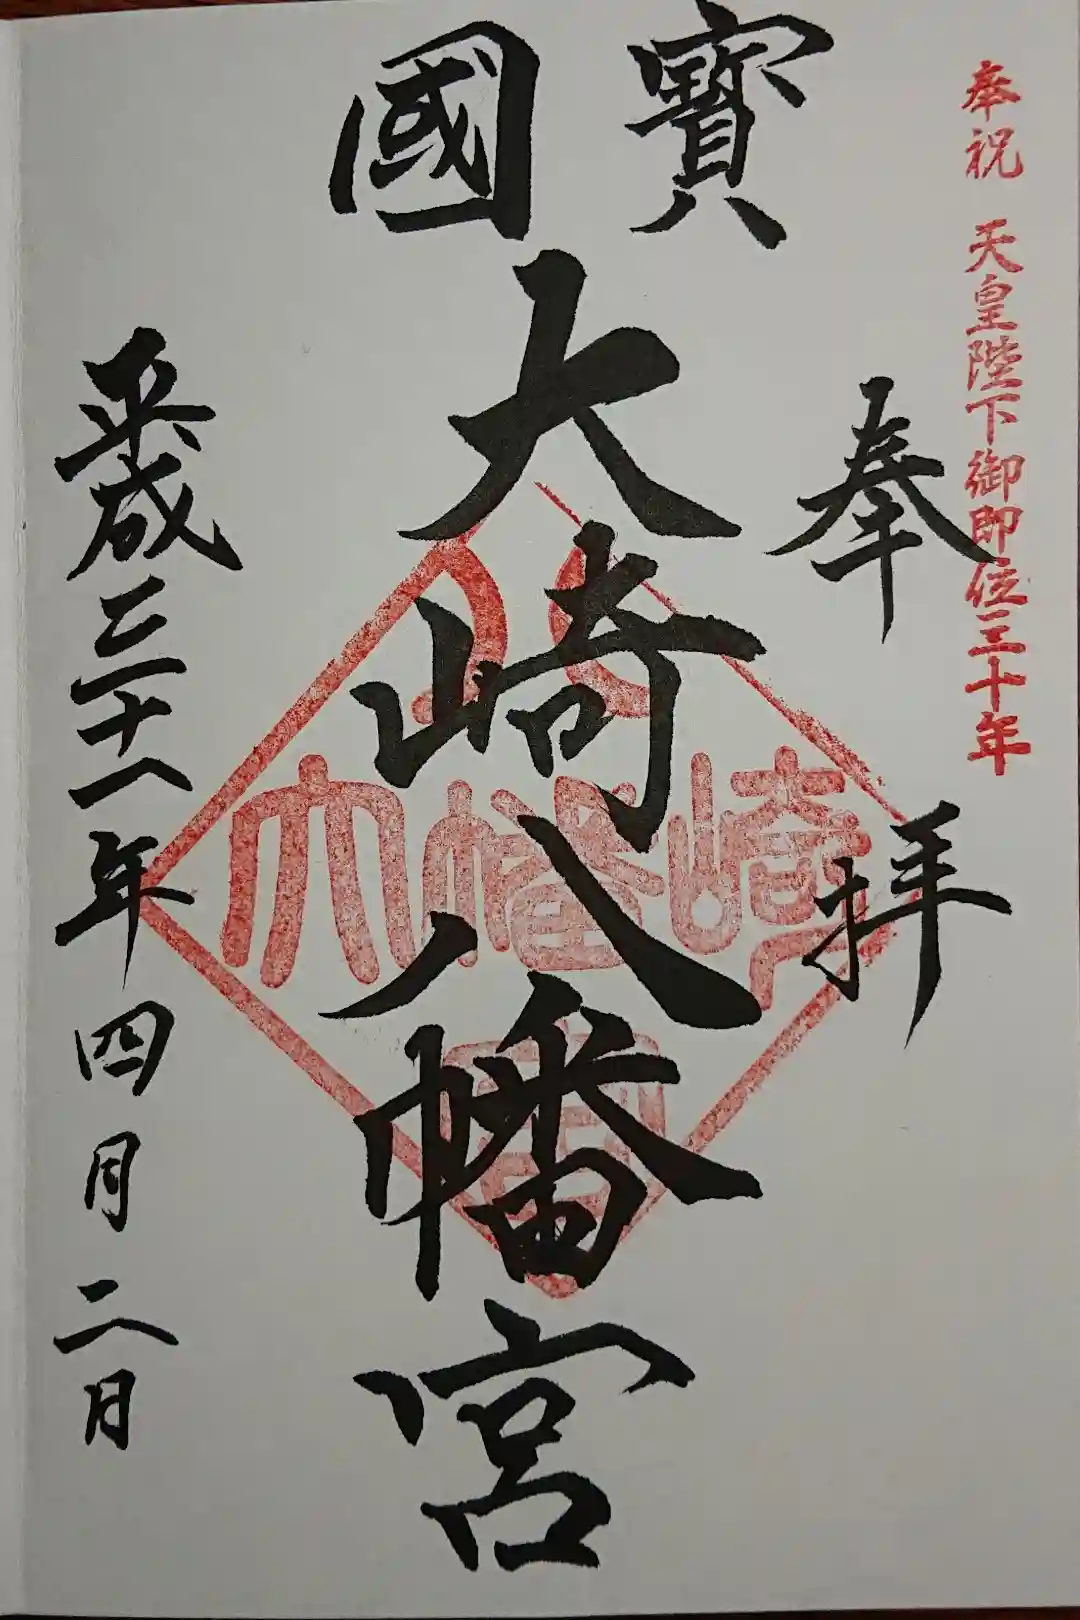 奉祝 天皇陛下御即位三十年
奉拝
寶國
大崎八幡宮
平成三十一年四月二日
大崎八幡宮